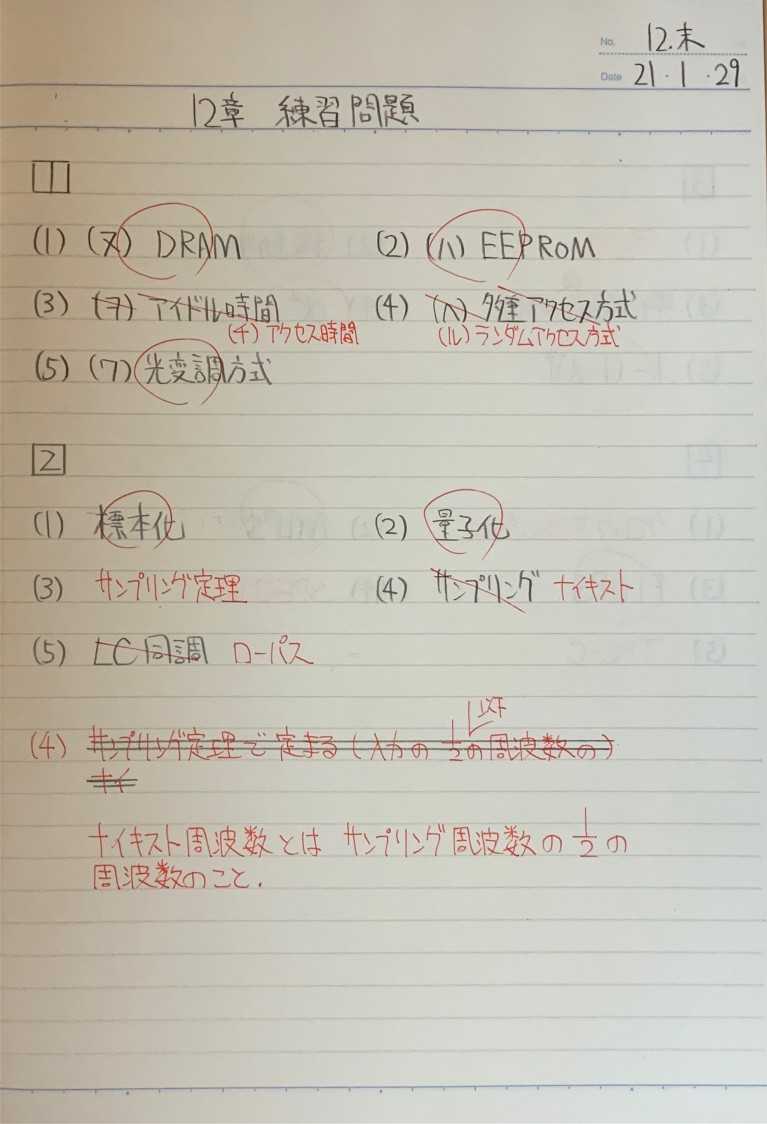 No. 12.末
Date 21・1・29
12章 練習問題
1
(1) (ヌ) DRAM (2) (ハ) EEPROM
(3) (ヲ) アイドル時間 (4) (ヘ) 多重アクセス方式
(チ) アクセス時間 (ル) ランダムアクセス方式
(5) (ワ) 光変調方式
2
(1) 標本化 (2) 量子化
(3) サンプリング定理 (4) サンプリング ナイキスト
(5) LC同調 ローパス
以下
(4) サンプリング定理で定まる (入力の 1/2の周波数の)
ナイ
ナイキスト周波数とは サンプリング周波数の 1/2 の
周波数のこと.